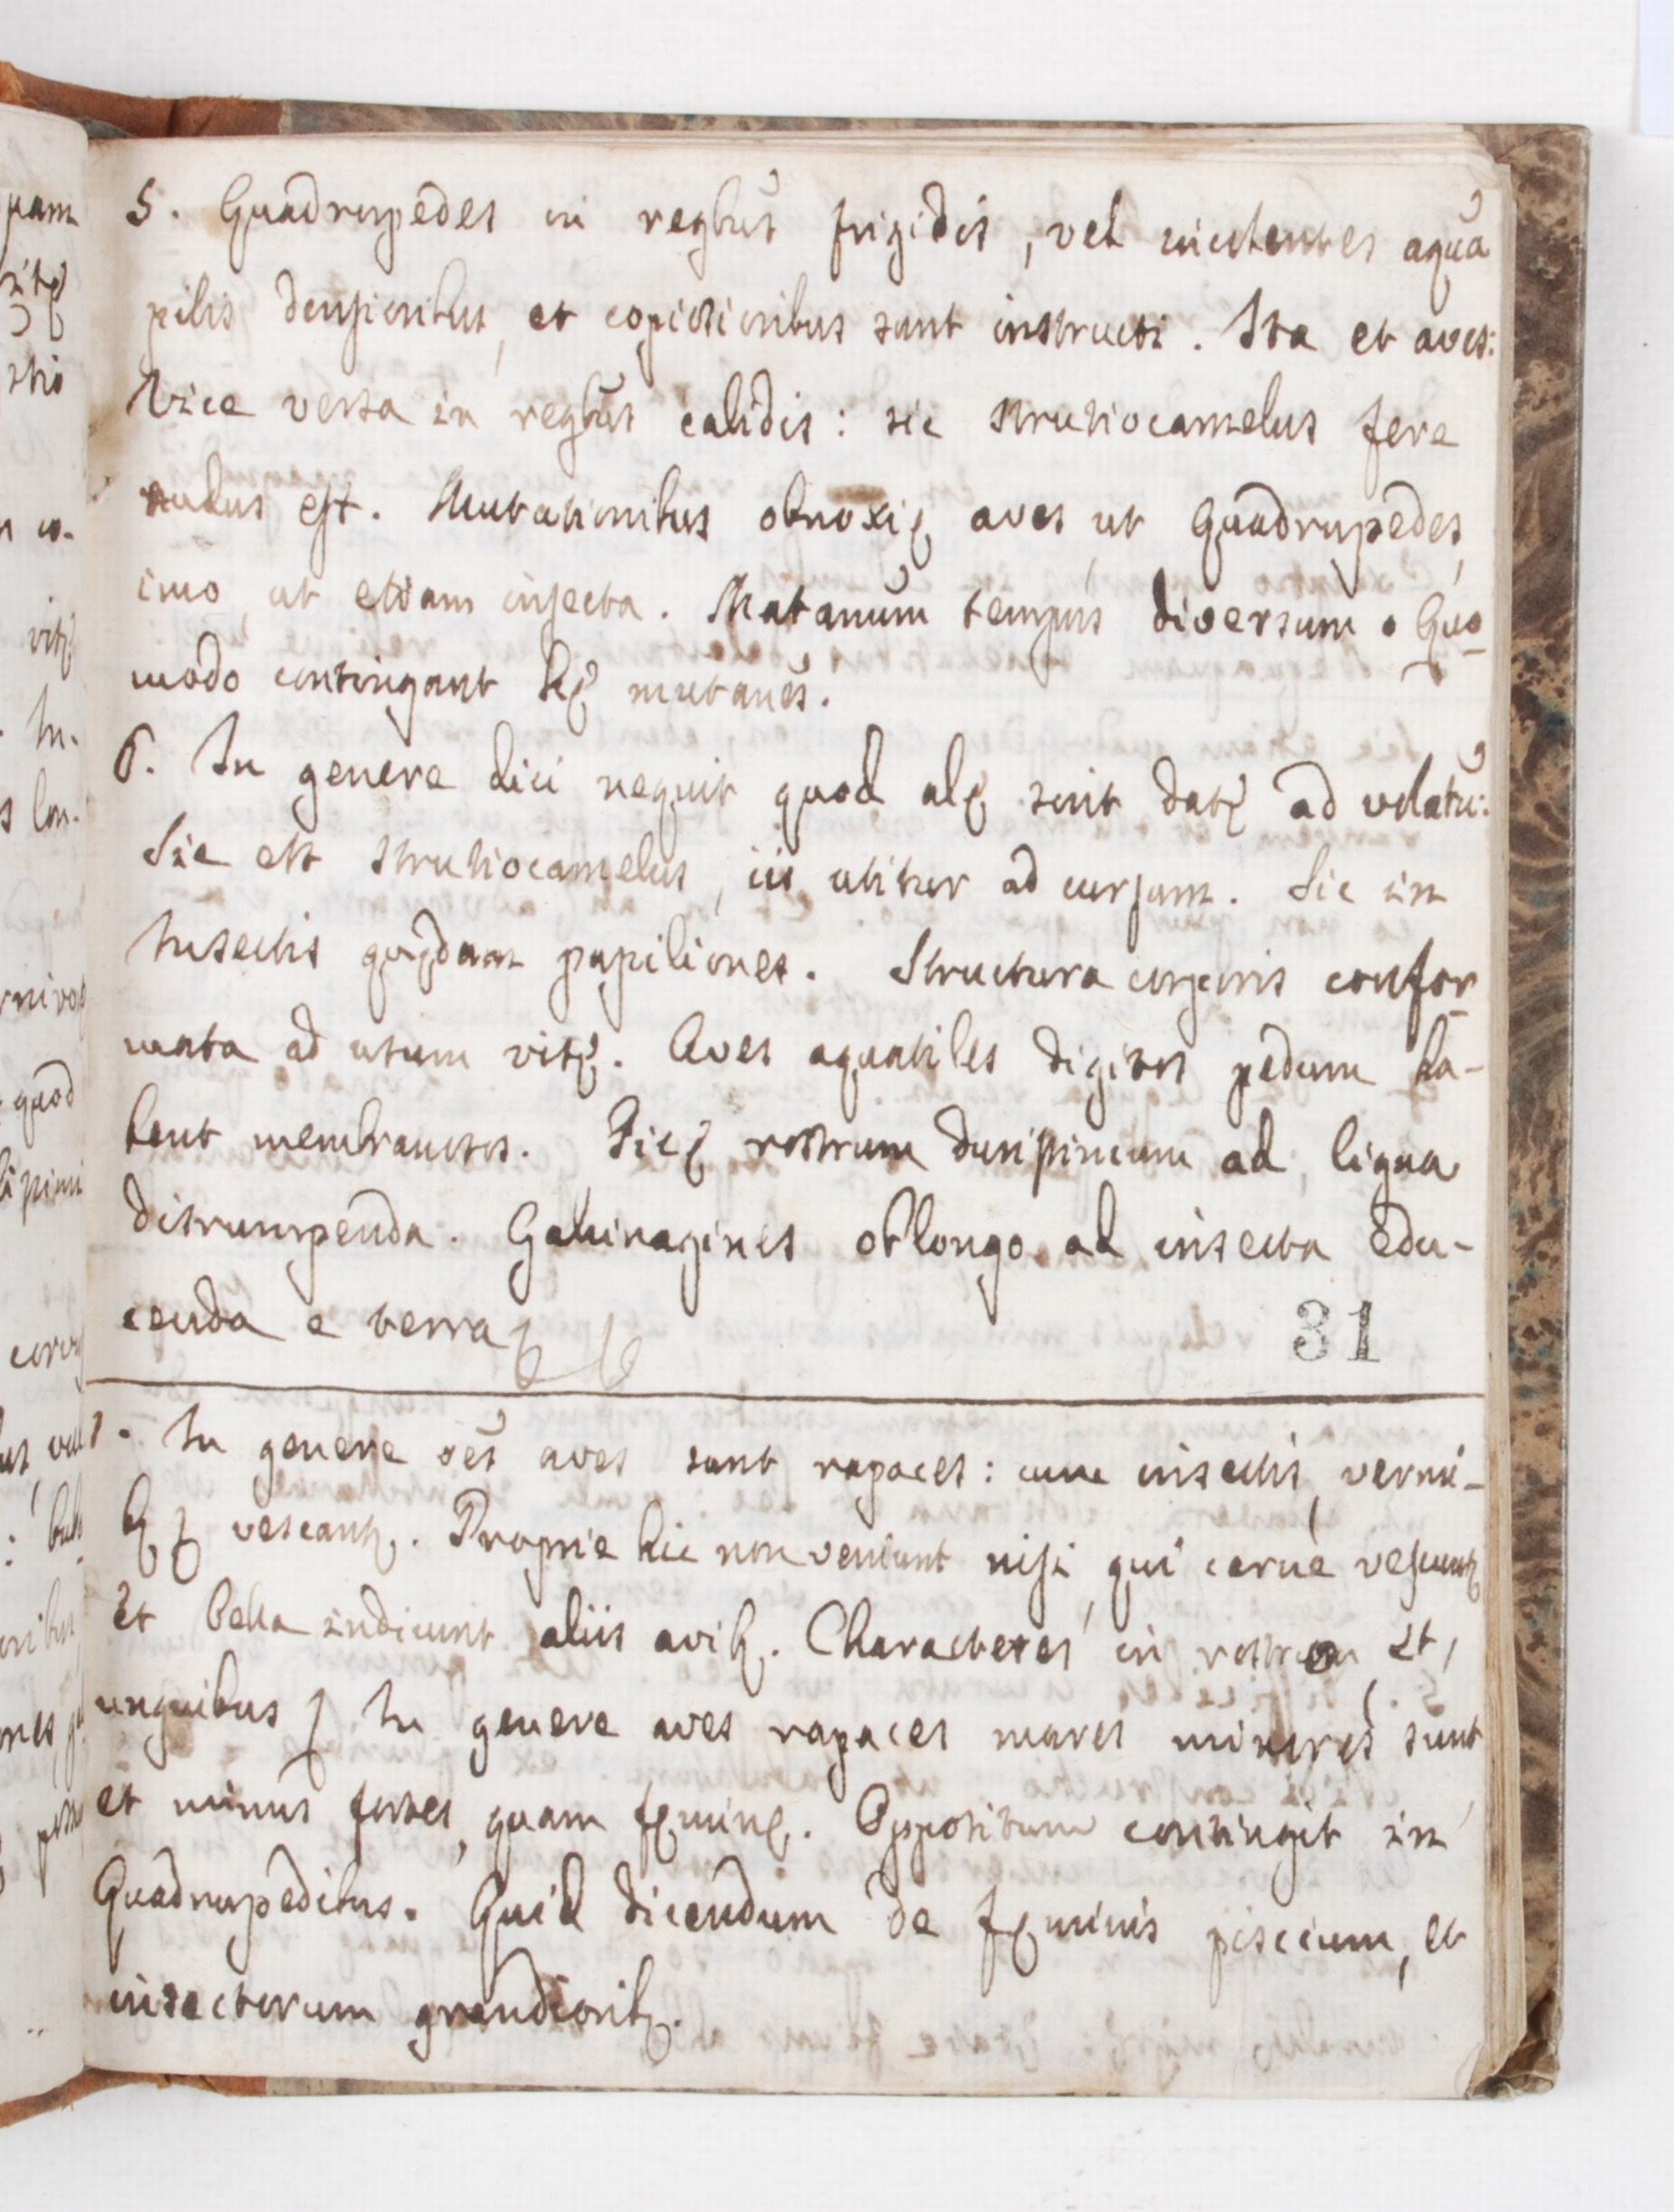 5. Quadrupedes in regbus frigidis, vel incolentes aquā
pilis densioribus, et copiosioribus sunt instructi. Ita et aves:
Vice versa in regbus calidis: sic struthiocamelus fere
nudus est. Mutationibus obnoxię aves ut Quadrupedes,
imo, ut etiam insecta. Mutanūm tempus diversum. Quo
modo contingant hę mutanēs.
6. In genere dici nequit quod alę sint datę ad volatū:
Sic est struthiocamelus, iis utitur ad cursum. Sic in
Insectis quędam papiliones. Structura corporis confor
mata ad usum vitę. Aves aquatiles digitos pedum ha-
bent membranosos. Picę rostrum durissimum ad ligna
disrumpenda. Gallinagines oblongo ad insecta edu-
cenda e terra
31
1. In genere oēs aves sunt rapaces: cum insectis, vermi-
bq vescantq. Proprie hic non veniunt nisi, qui carne vescuntq
Et bella indicunt aliis avibq. Characteres in rostro et,
unguibus In genere aves rapaces mares minores sunt
et minus fortes, quam fęminę. Oppositum contingit in
Quadrupedibus. Quid dicendum de fęminis piscium, et
insectorum grandioribq.